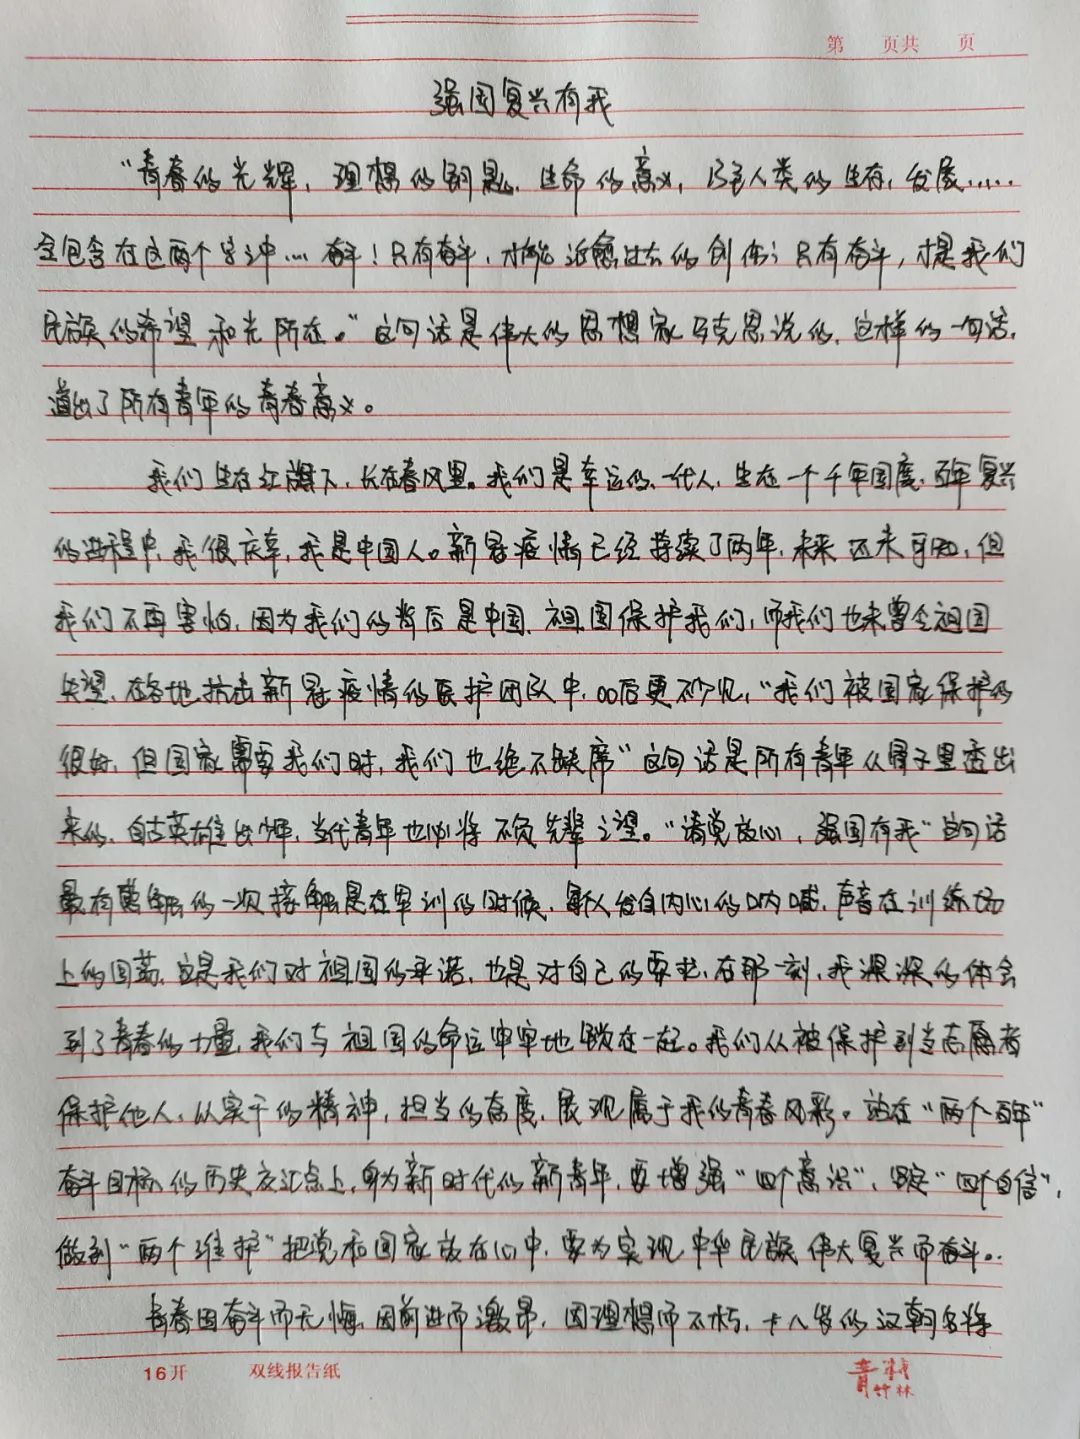 第 页共 页
强国复兴有我
“青春的光辉，理想的钥匙，生命的意义，乃至人类的生存，发展.....
全包含在这两个字之中....奋斗！只有奋斗，才能治愈过去的创伤；只有奋斗，才是我们
民族的希望和光所在。”这句话是伟大的思想家马克思说的，这样的一句话，
道出了所有青年的青春意义。
我们生在红旗下，长在春风里。我们是幸运的一代人，生在一个千年国度，百年复兴
的进程中，我很庆幸，我是中国人。新冠疫情已经持续了两年，未来还未可知，但
我们不再害怕，因为我们的背后是中国，祖国保护我们，而我们也未曾令祖国
失望，在各地抗击新冠疫情的医护团队中，00后更不少见，“我们被国家保护的
很好，但国家需要我们时，我们也绝不缺席”这句话是所有青年从骨子里透出
来的，自古英雄出少年，当代青年也必将不负先辈之望。“请党放心，强国有我”这句话
最有感触的一次接触是在军训的时候，每人发自内心的呐喊，声音在训练场
上的回荡，这是我们对祖国的承诺，也是对自己的要求，在那一刻，我深深的体会
到了青春的力量，我们与祖国的命运牢牢地锁在一起。我们从被保护到当志愿者
保护他人，从实干的精神，担当的态度，展现属于我的青春风彩。站在“两个百年”
奋斗目标的历史交汇点上，身为新时代的新青年，要增强“四个意识”，坚定“四个自信”，
做到“两个维护”把党和国家放在心中，要为实现中华民族伟大复兴而奋斗..
青春因奋斗而无悔，因前进而激昂，因理想而不朽，十八岁的汉朝名将
16开 双线报告纸
青竹林